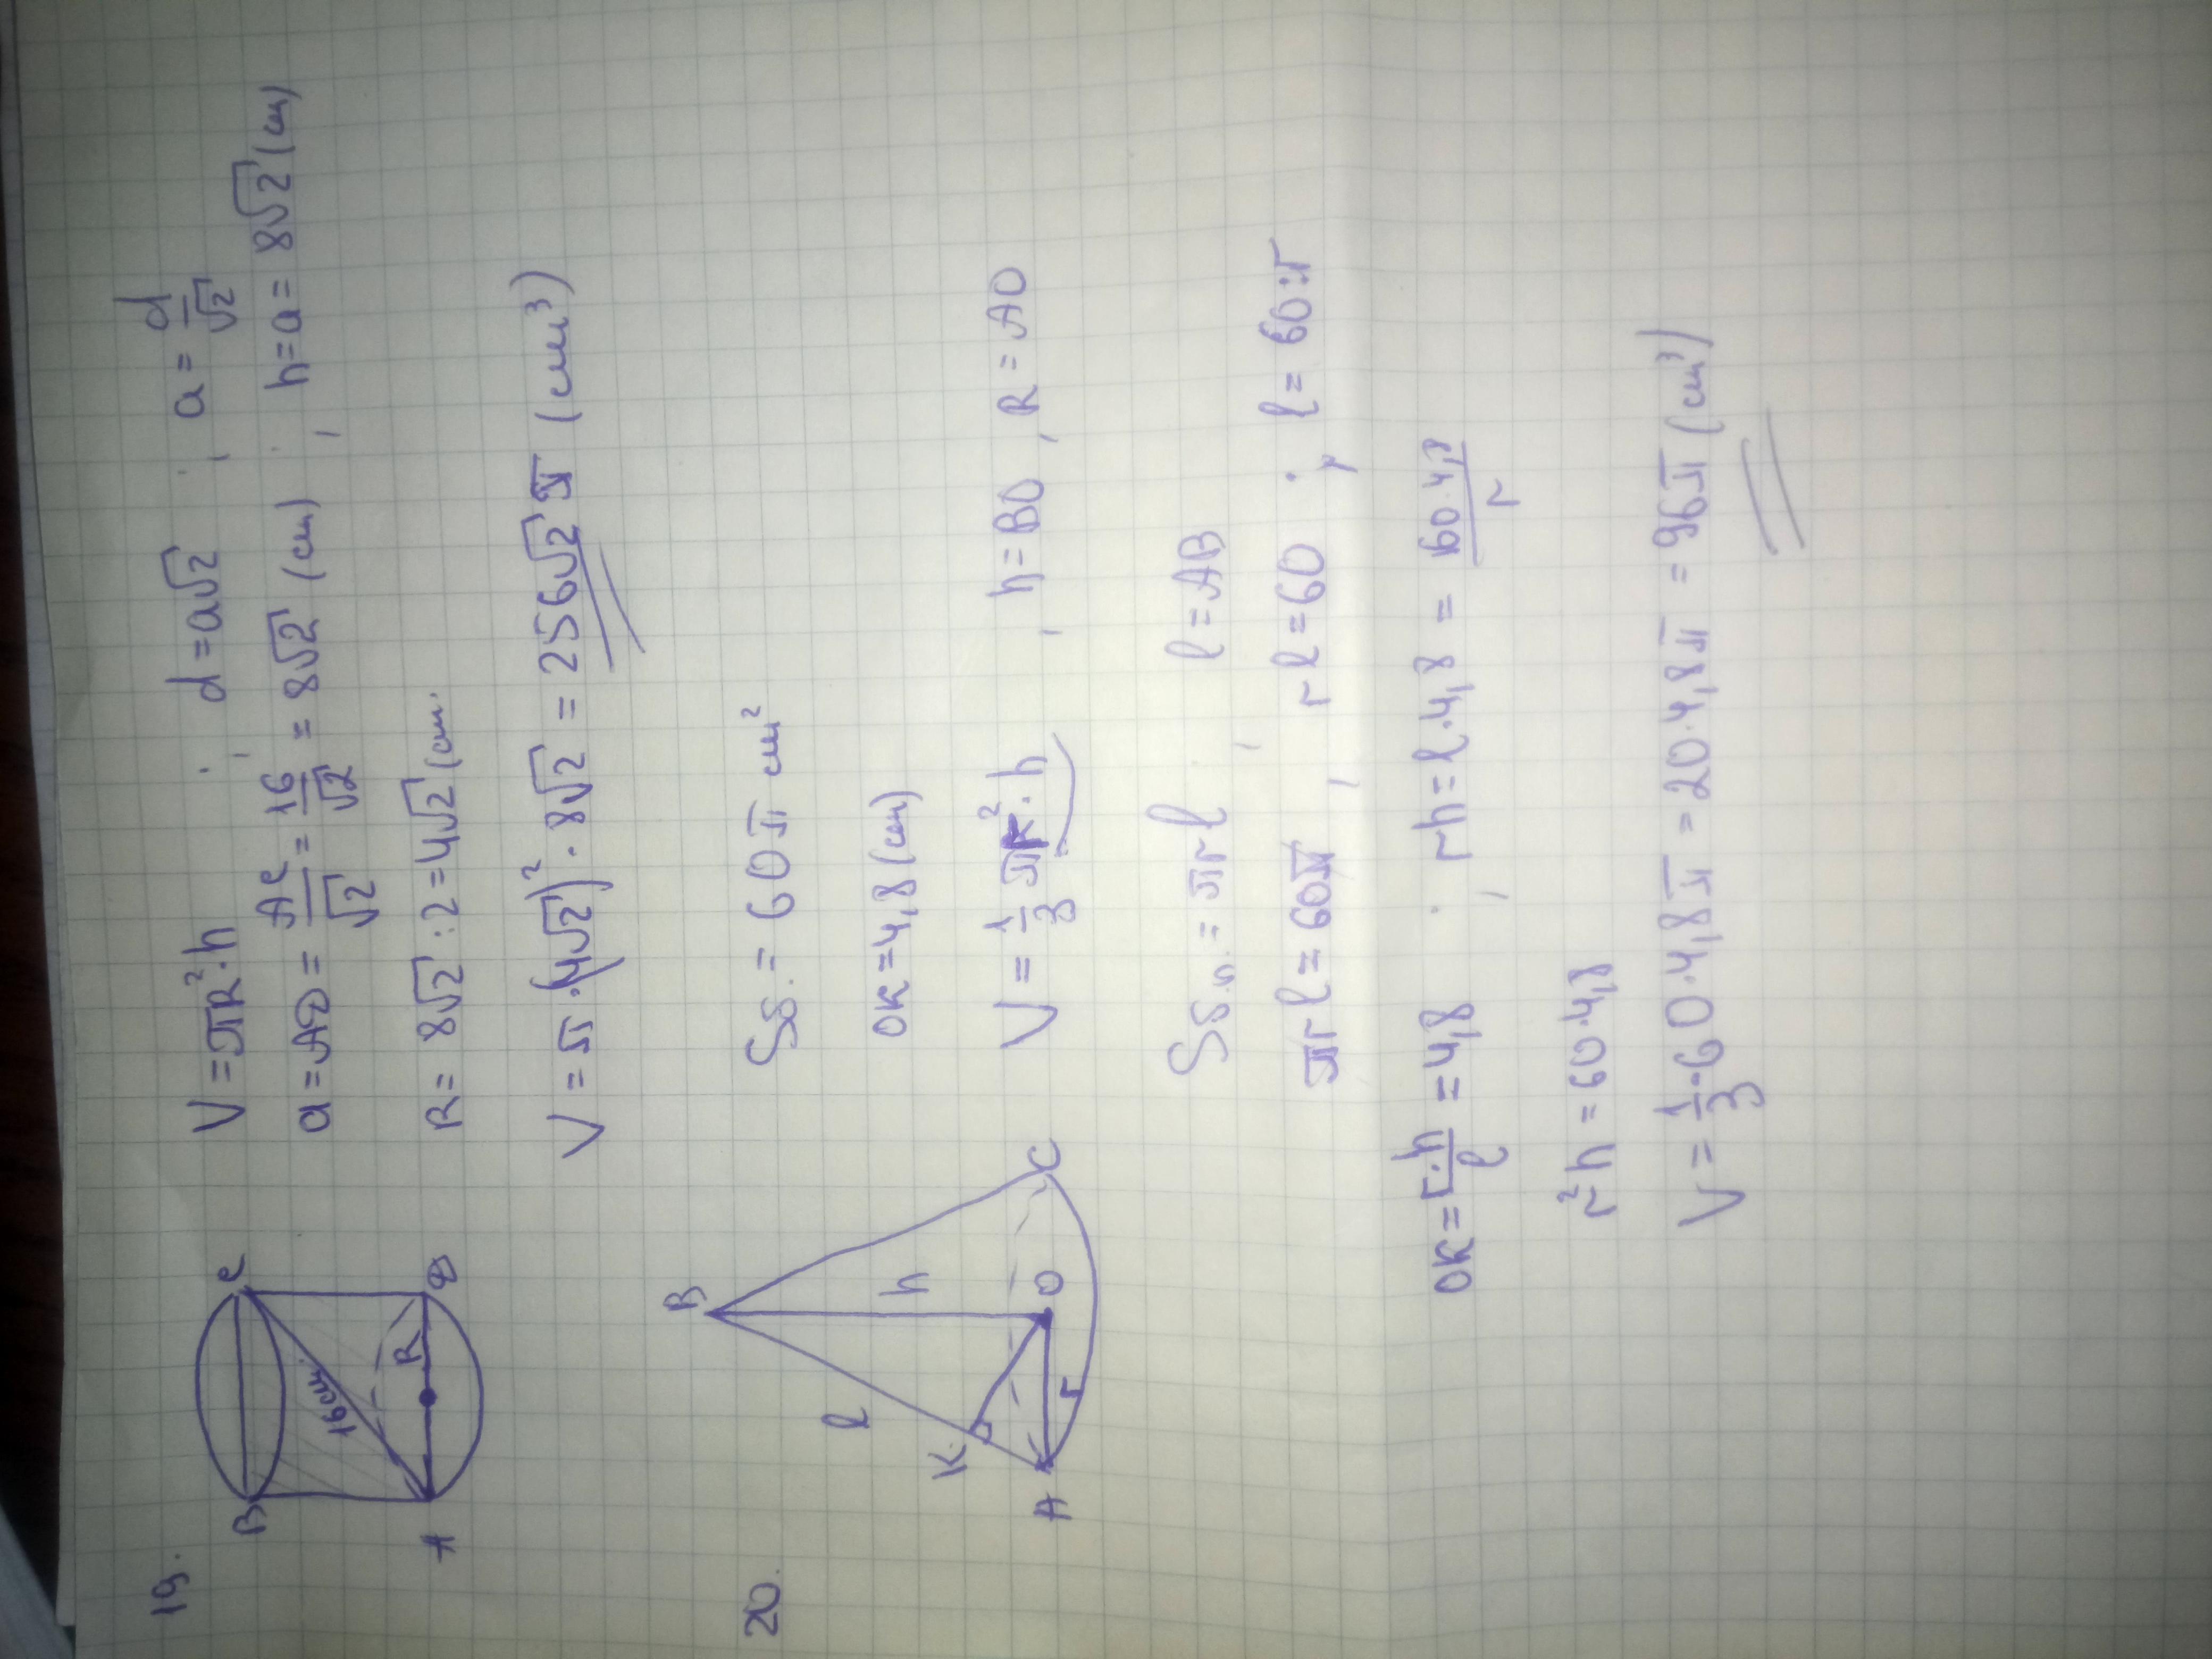 19.
B
C
16см
R
A
D
V = πR²·h ; d = a√2 ; a = d/√2
a = AD = AC/√2 = 16/√2 = 8√2 (см) ; h = a = 8√2 (см)
R = 8√2 : 2 = 4√2 (см.
V = π·(4√2)²·8√2 = 256√2 π (см³)
20.
B
l
h
K
O
A
r
C
Sδ. = 60π см²
OK = 4,8 (см)
V = 1/3 πR²·h , h = BO , R = AO
Sδ.п. = πrl , l = AB
πrl = 60π , rl = 60 ; l = 60:r
OK = r·h/l = 4,8 ; rh = l·4,8 = 60·4,8/r
r²h = 60·4,8
V = 1/3·60·4,8π = 20·4,8π = 96π (см³)